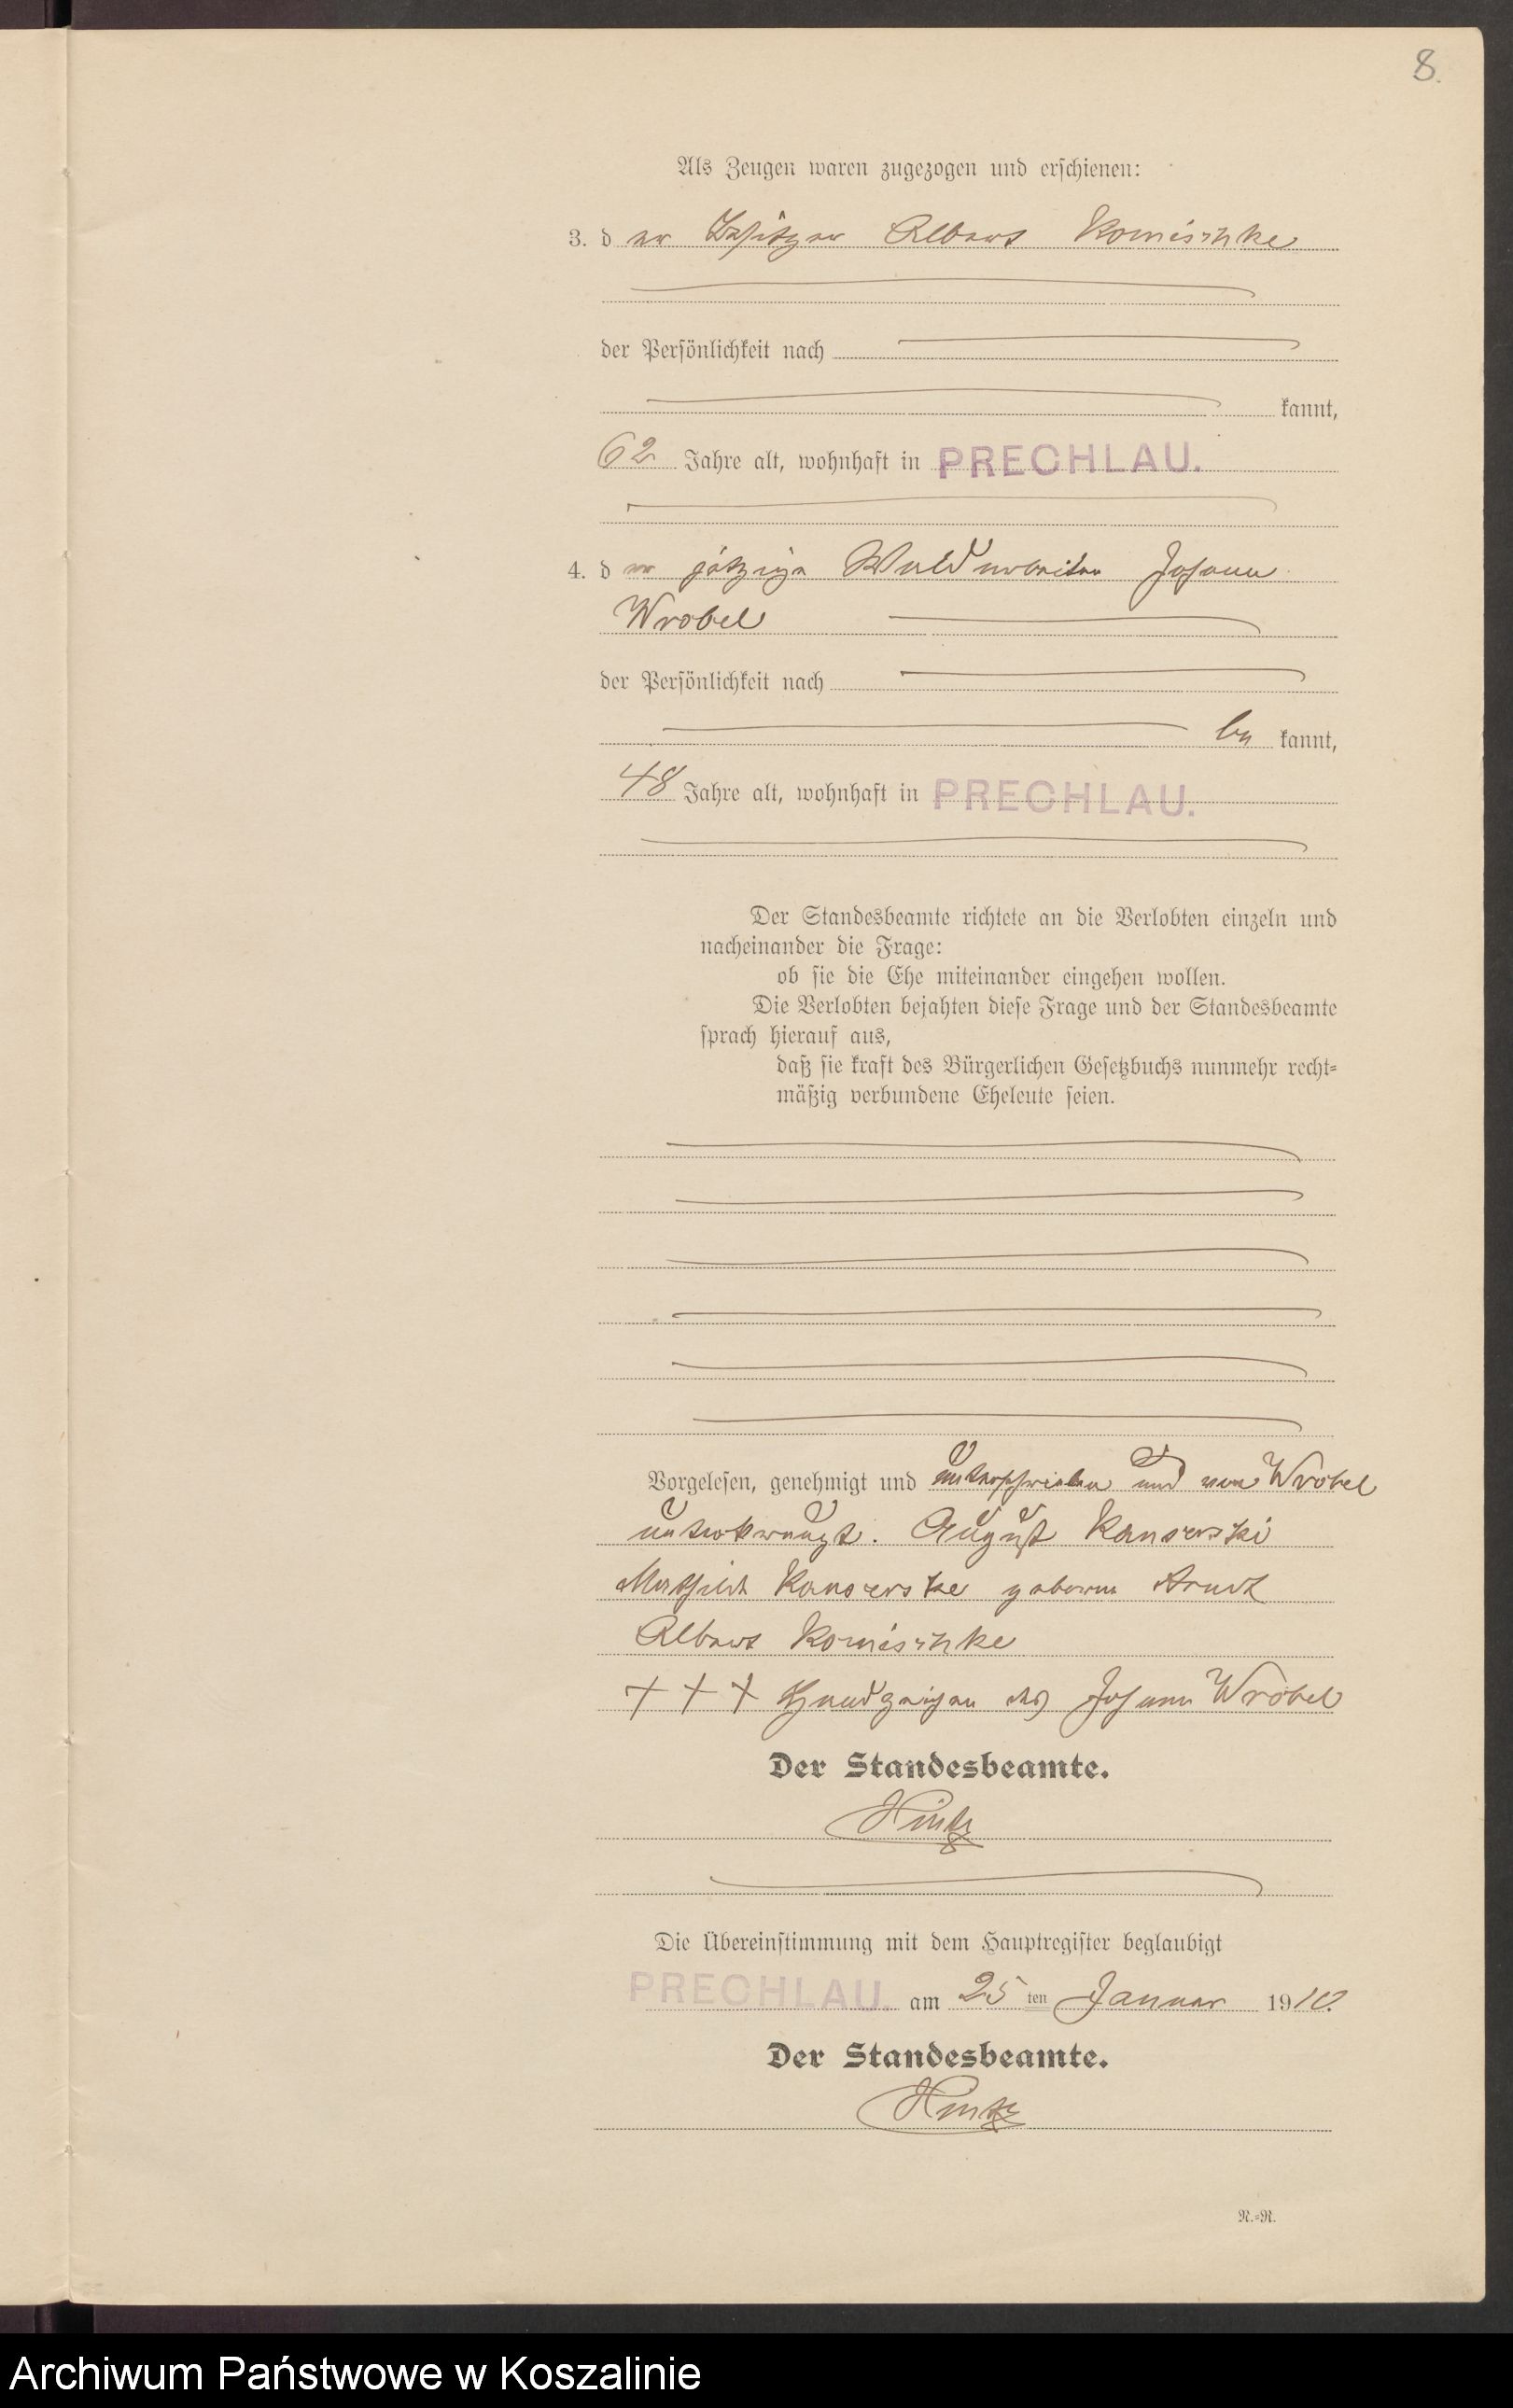 8.
Als Zeugen waren zugezogen und erschienen:
3. der Besitzer Albert Komischke
der Persönlichkeit nach
kannt,
62 Jahre alt, wohnhaft in PRECHLAU.
4. der jetzige Waldarbeiter Johann
Wrobel
der Persönlichkeit nach
be kannt,
48 Jahre alt, wohnhaft in PRECHLAU.
Der Standesbeamte richtete an die Verlobten einzeln und
nacheinander die Frage:
ob sie die Ehe miteinander eingehen wollen.
Die Verlobten bejahten diese Frage und der Standesbeamte
sprach hierauf aus,
daß sie kraft des Bürgerlichen Gesetzbuchs nunmehr recht=
mäßig verbundene Eheleute seien.
Vorgelesen, genehmigt und unterschrieben und von Wrobel
unterkreuzt. August
geborene Arndt
Albert Komischke
+ + + Handzeichen des Johann Wrobel
Der Standesbeamte.
Hintz
Die Übereinstimmung mit dem Hauptregister beglaubigt
PRECHLAU. am 25 ten Januar 1910.
Der Standesbeamte.
Hintz
N.=R.
Archiwum Państwowe w Koszalinie